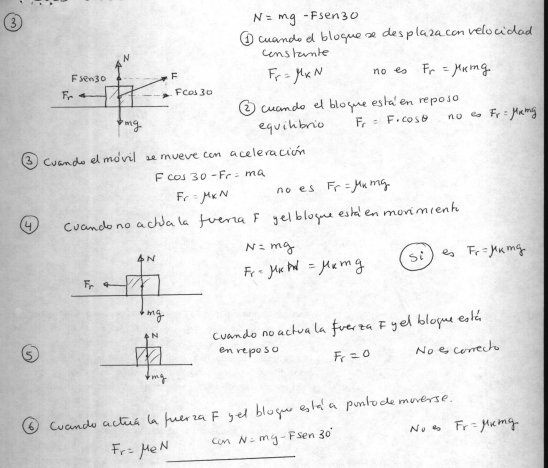 ③
N = mg - Fsen30
① cuando el bloque se desplaza con velocidad
constante
Fr = μK N no es Fr = μK mg
N
Fsen30
F
Fr
Fcos30
mg
② cuando el bloque está en reposo
equilibrio Fr = F·cosθ no es Fr = μK mg
③ Cuando el móvil se mueve con aceleración
F cos 30 - Fr = ma
Fr = μK N no es Fr = μK mg
④ Cuando no actúa la fuerza F y el bloque está en movimiento
N
Fr
mg
N = mg
Fr = μK N = μK mg Si es Fr = μK mg
⑤
N
mg
Cuando no actua la fuerza F y el bloque está
en reposo Fr = 0 No es correcto
⑥ Cuando actúa la fuerza F y el bloque está a punto de moverse.
Fr = μe N con N = mg - Fsen 30° No es Fr = μK mg